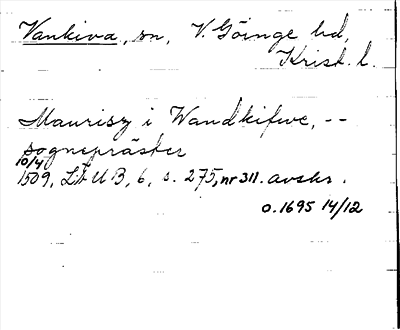 Vankiva, sn, V. Göinge hd,
Krist. l.
Maurisz i Wandkifwe, --
sognepräster
10/4
1509, LÄUB, 6, s. 275, nr 311. avskr.
o. 1695 14/12